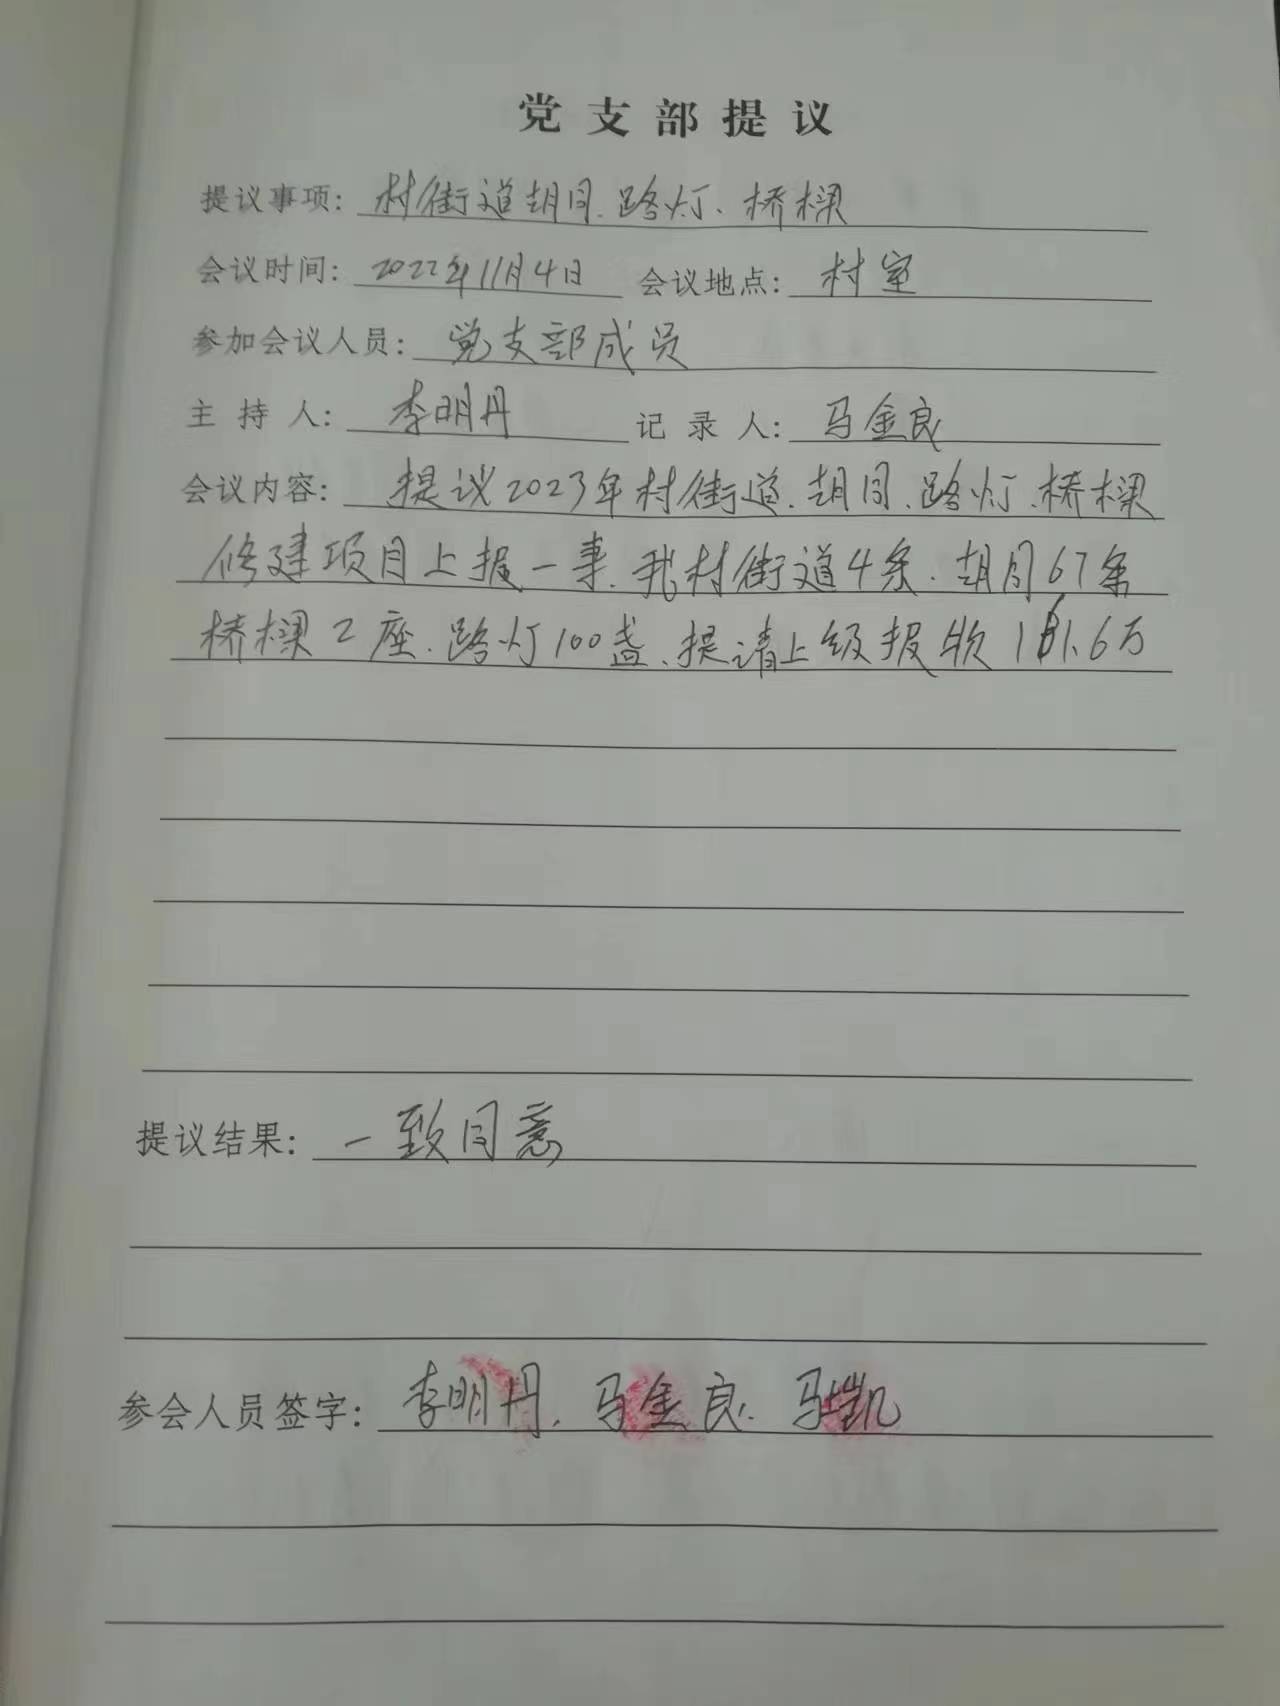 党支部提议
提议事项: 村街道胡同、路灯、桥梁
会议时间: 2022年11月4日 会议地点: 村室
参加会议人员: 党支部成员
主持人: 李明丹 记录人: 马金良
会议内容: 提议2023年村街道、胡同、路灯、桥梁
修建项目上报一事、我村街道4条、胡同67条
桥梁2座、路灯100盏、提请上级报
提议结果: 一致同意
参会人员签字: 李明丹、马金良、马凯